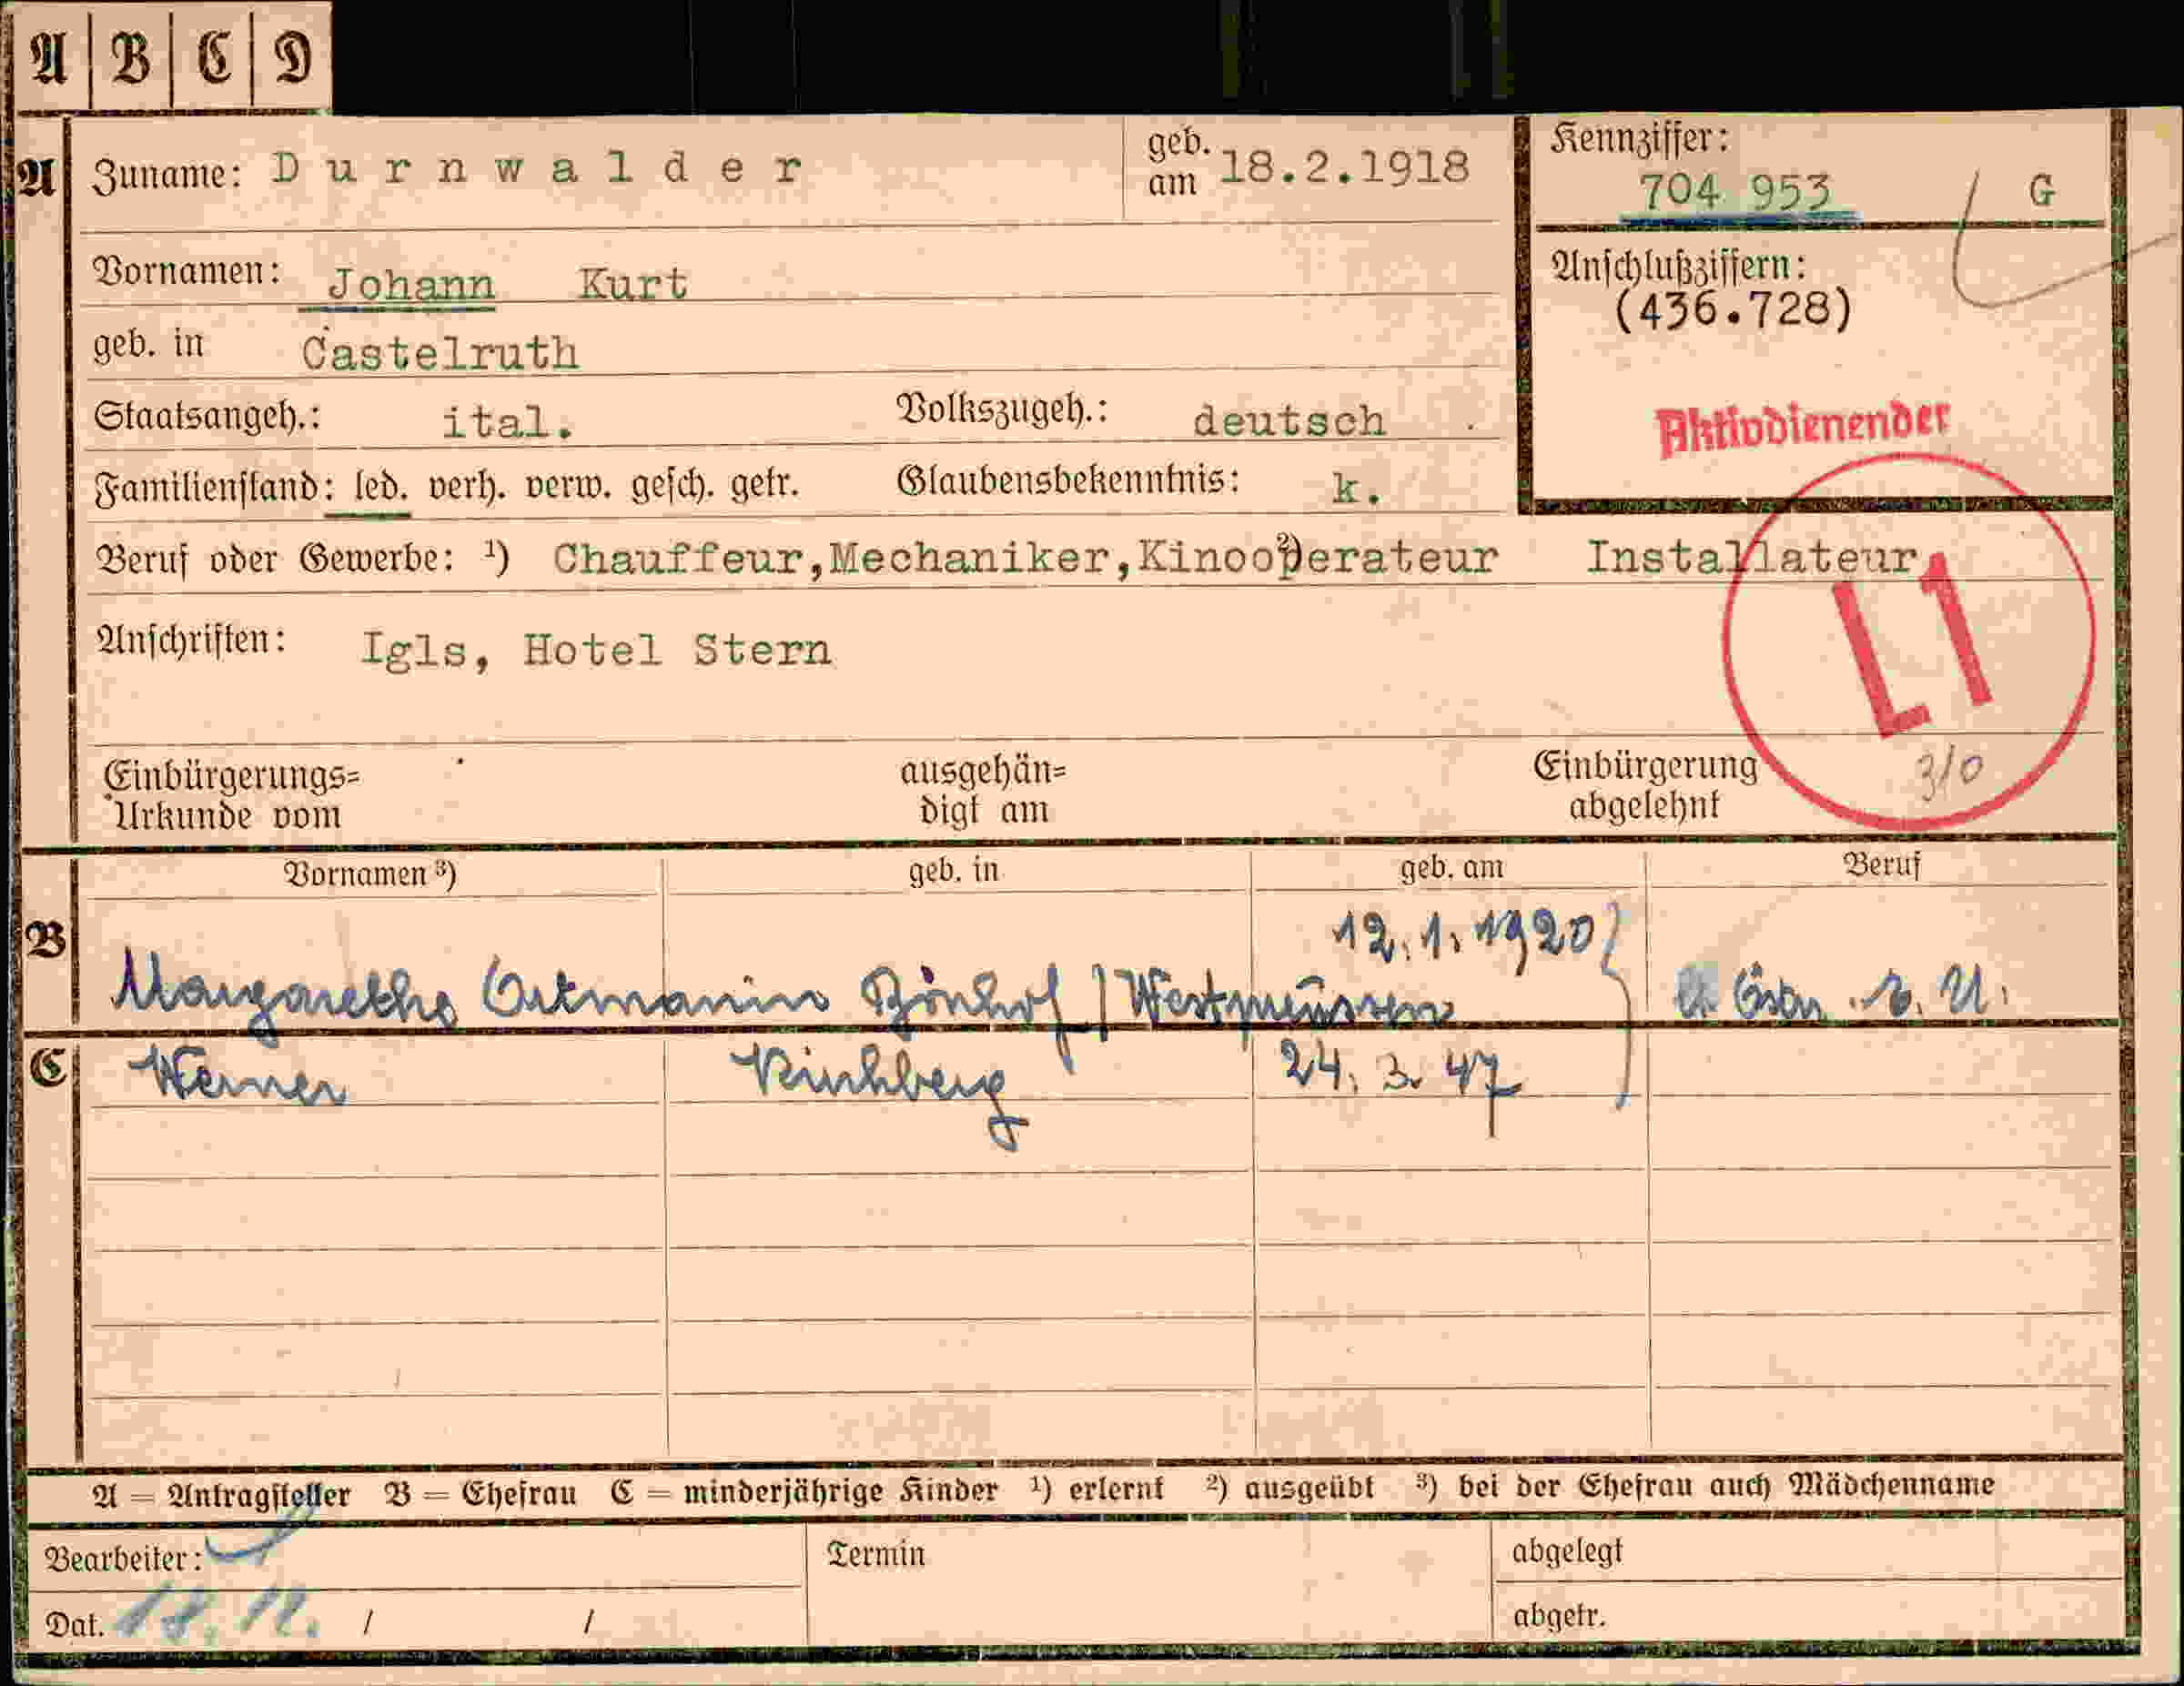 A B C D
A Zuname: Durnwalder geb. am 18.2.1918 Kennziffer: 704 953 G
Vornamen: Johann Kurt Anschlußziffern: (436.728)
geb. in Castelruth
Staatsangeh.: ital. Volkszugeh.: deutsch Aktivdienender
Familienstand: led. verh. verw. gesch. getr. Glaubensbekenntnis: k.
Beruf oder Gewerbe: ¹) Chauffeur,Mechaniker,Kinooperateur ²) Installateur
L1
Anschriften: Igls, Hotel Stern
3/0
Einbürgerungs= ausgehän= Einbürgerung
Urkunde vom digt am abgelehnt
Vornamen ³) geb. in geb. am Beruf
12.1.1920
B Margarethe Westpreussen
C Werner Kirchberg 24.3.47
A = Antragsteller B = Ehefrau C = minderjährige Kinder ¹) erlernt ²) ausgeübt ³) bei der Ehefrau auch Mädchenname
Bearbeiter: Termin abgelegt
Dat. 18.12. / / abgetr.